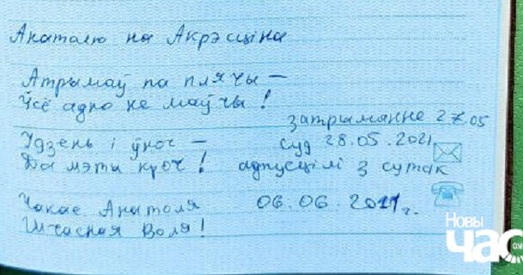 Анатолю на Акрэсціна
Атрымаў па плячы —
Ўсё адно не маўчы!
затрыманне 27.05
Удзень і ўноч —
суд 28.05.2021
Да мэты кроч!
адпусцілі з сутак
06.06.2021г.
Чакае Анатоля
Шчасная Воля!
Новы
час